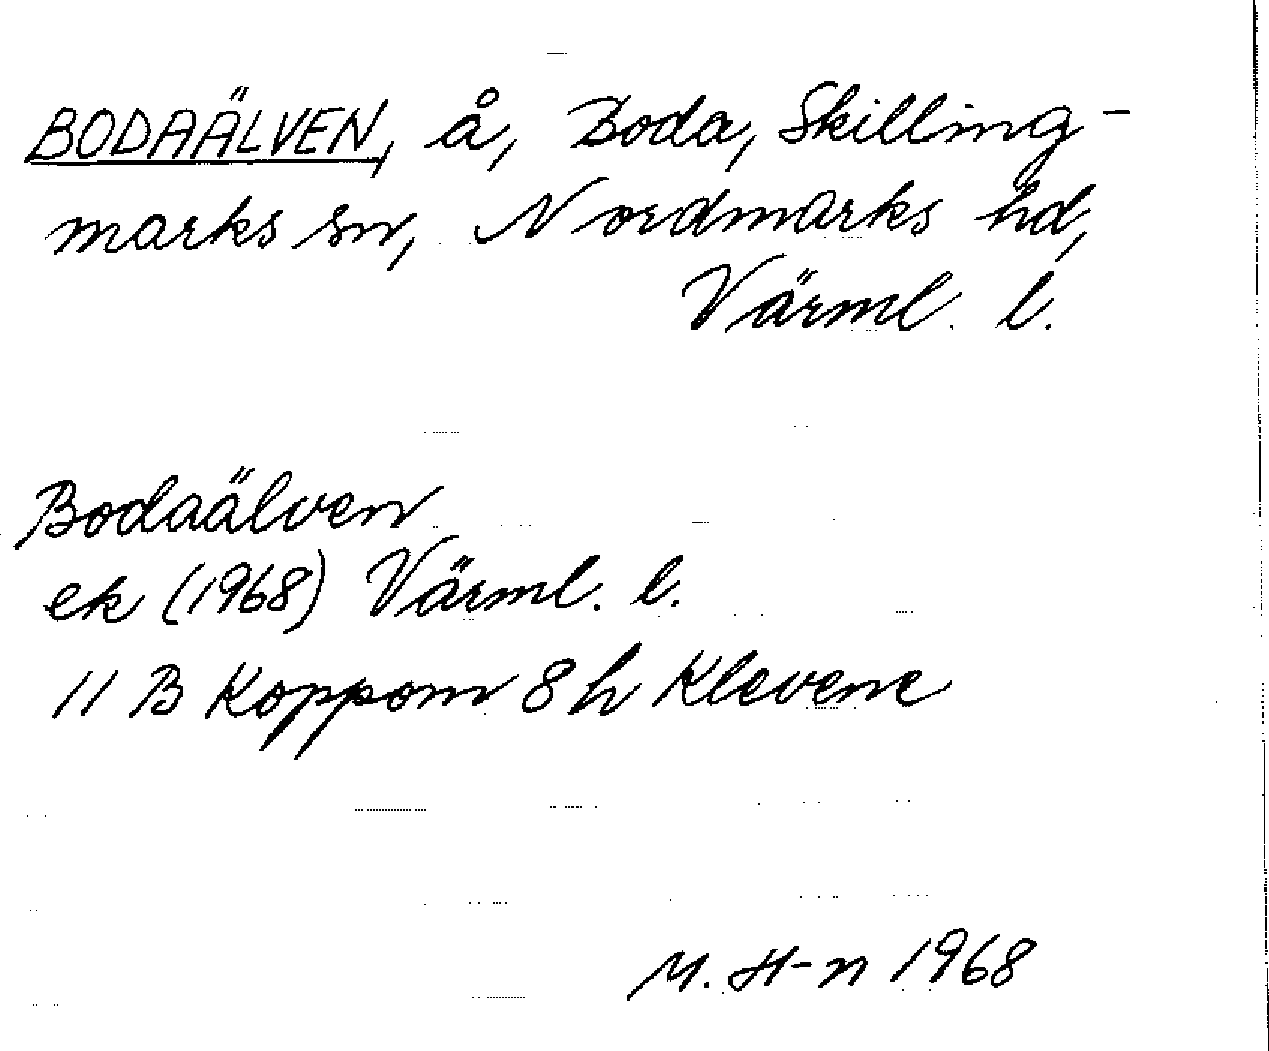 BODAÄLVEN, å, Boda, Skilling-
marks sn, Nordmarks hd,
Värml. l.
Bodaälven
ek (1968) Värml. l.
11 B Koppom 8 h Klevene
M. H-n 1968